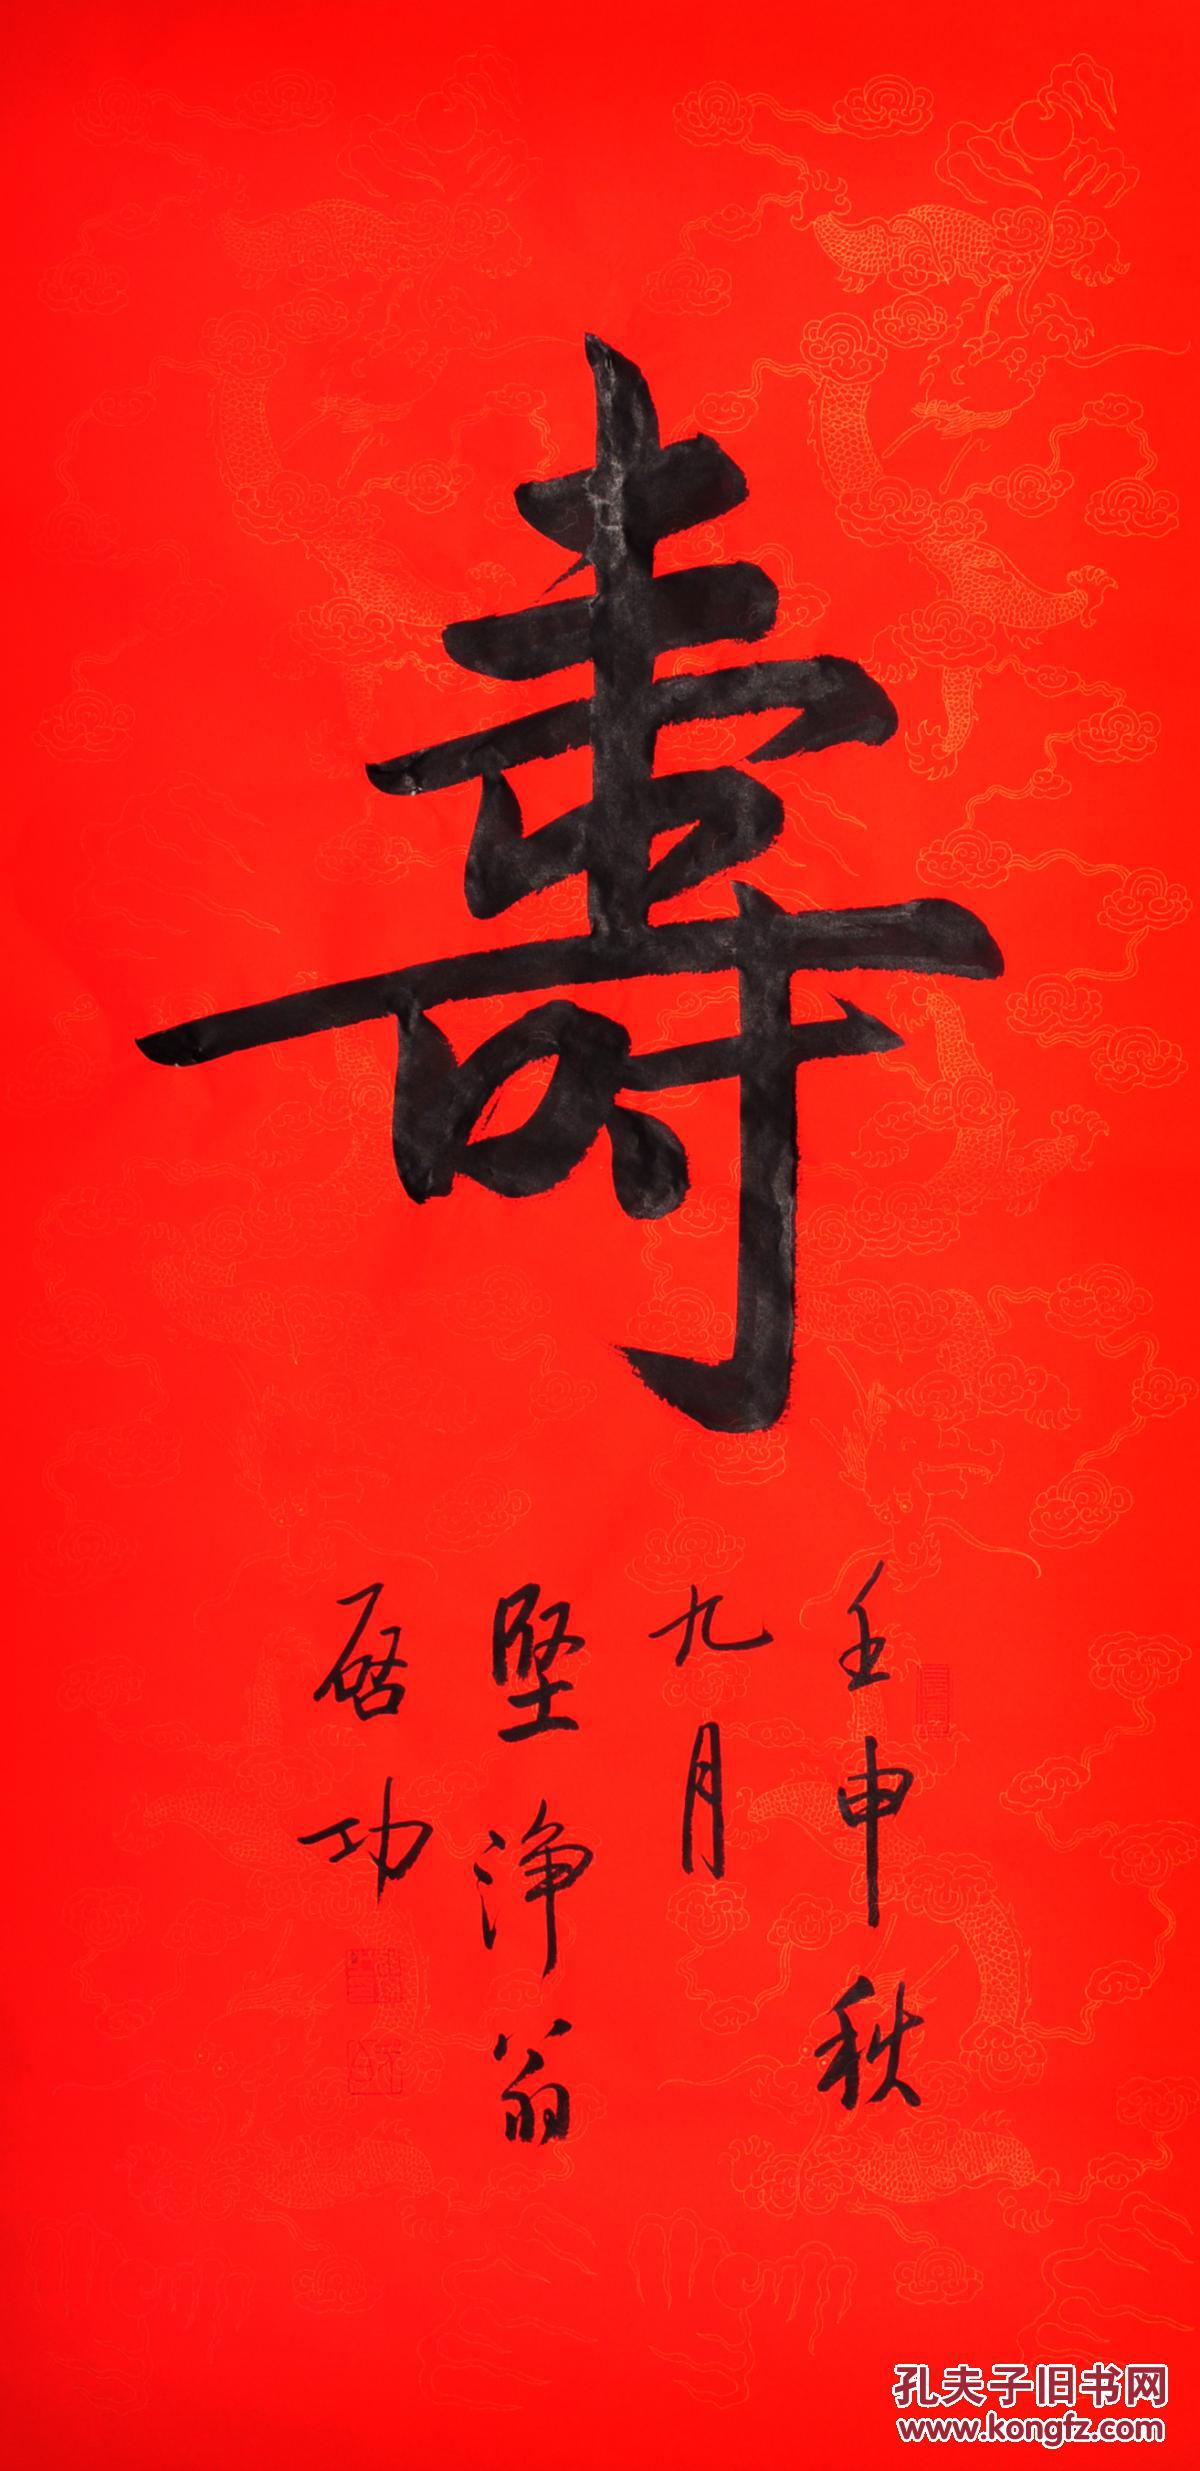 壽
壬申秋
九月
堅淨翁
启功
孔夫子旧书网
www.kongfz.com